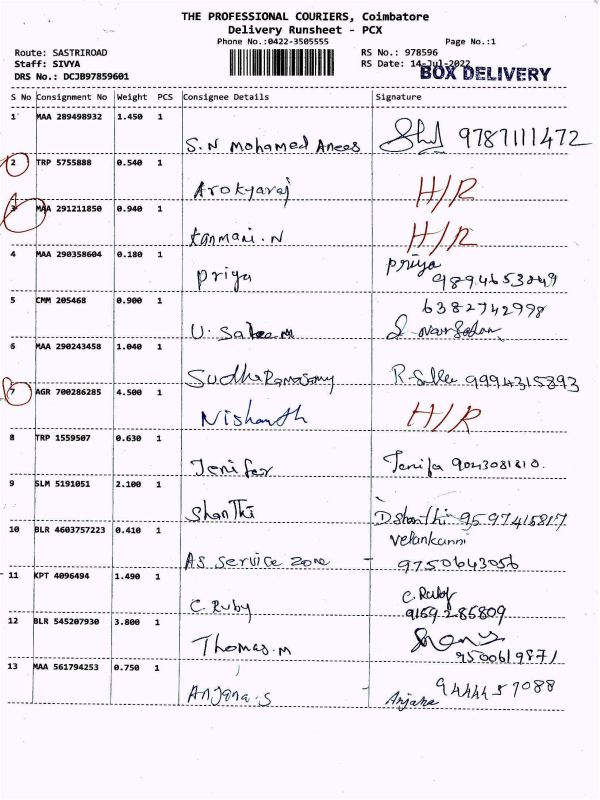 THE PROFESSIONAL COURIERS, Coimbatore
Delivery Runsheet - PCX
Phone No.:0422-3505555 Page No.:1
Route: SASTRIROAD RS No.: 978596
Staff: SIVYA RS Date: 14-Jul-2022
DRS No.: DCJB97859601 BOX DELIVERY
S No Consignment No Weight PCS Consignee Details Signature
1 MAA 289498932 1.450 1
S.N Mohamed Anees 9787111472
2 TRP 5755888 0.540 1
Arokyaraj H/R
3 MAA 291211850 0.940 1
Kanmani.N H/R
4 MAA 290358604 0.180 1
Priya Priya
9894653049
5 CMM 205468 0.900 1 6382742998
U.
6 MAA 290243458 1.040 1
Sudha Ramasamy 9994315893
7 AGR 700286285 4.500 1
Nishanth H/R
8 TRP 1559507 0.630 1
Jenifer Jenifa 9043081810.
9 SLM 5191051 2.100 1
Shanthi D Shanthi 9597415817
10 BLR 4603757223 0.410 1 Velankanni
AS Service Zone - 9750643056
11 KPT 4096494 1.490 1
C. Ruby C. Ruby
9159285809
12 BLR 545207930 3.800 1
Thomas.M
9500619871
13 MAA 561794253 0.750 1
Anjana.S - Anjana 9444457088